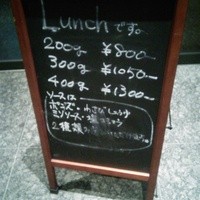 Lunch です。
200g ¥800ー
300g ¥1050ー
400g ¥1300ー
ソースは
ポンズ・わさびしょうゆ
ミソソース・塩
2種類